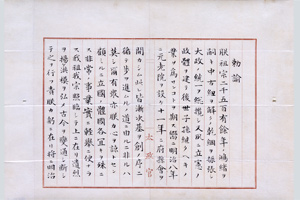 勅諭
朕祖宗二千五百有餘年ノ鴻緒ヲ
嗣キ中古紐ヲ解クノ乾綱ヲ振張シ
大政ノ統一ヲ總攬シ又夙ニ立憲ノ
政體ヲ建テ後世子孫繼クヘキノ
業ヲ為サンコトヲ期ス嚮ニ明治八年
ニ元老院ヲ設ケ十一年ニ府縣會ヲ
開カシム此レ皆漸次基ヲ創メ序ニ
循テ歩ヲ進ムルノ道ニ由ルニ非サルハ
莫シ爾有衆亦朕カ心ヲ諒トセン
顧ミルニ立國ノ體國各宜キヲ殊ニ
ス非常ノ事業實ニ輕擧ニ便ナラ
ス我祖我宗照臨シテ上ニ在リ遺烈
ヲ揚ケ洪模ヲ弘メ古今ヲ變通シ斷シ
テ之ヲ行フ責朕カ躬ニ在リ將ニ明治
太政官